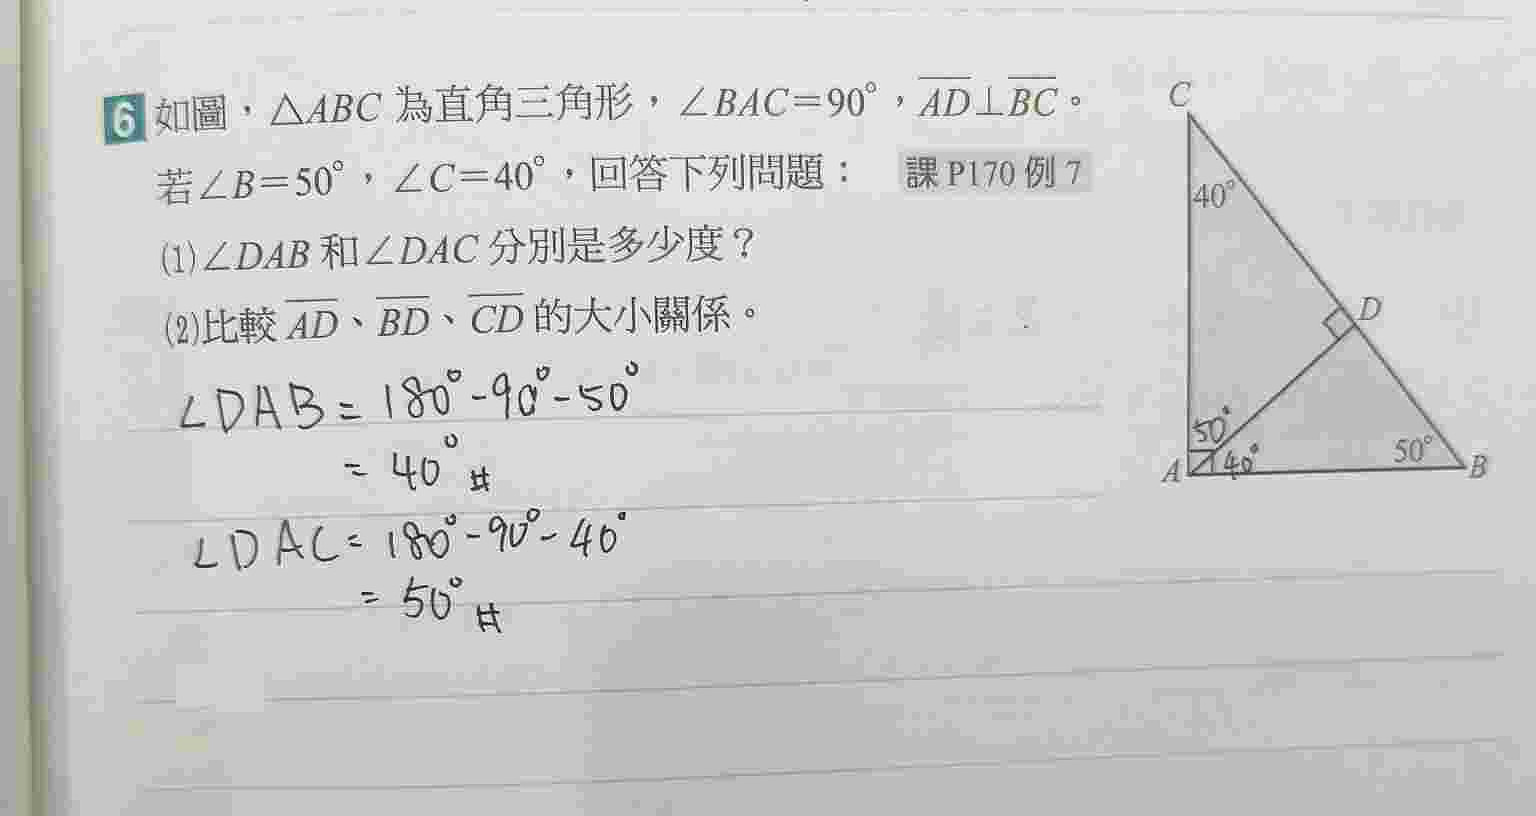 6 如圖，△ABC 為直角三角形，∠BAC=90°，AD⊥BC。
若∠B=50°，∠C=40°，回答下列問題： 課 P170 例 7
(1)∠DAB 和∠DAC 分別是多少度？
(2)比較 AD、BD、CD 的大小關係。
∠DAB = 180°-90°-50°
= 40° #
∠DAC = 180°-90°-40°
= 50° #
C
40°
D
50°
A
40°
50°
B